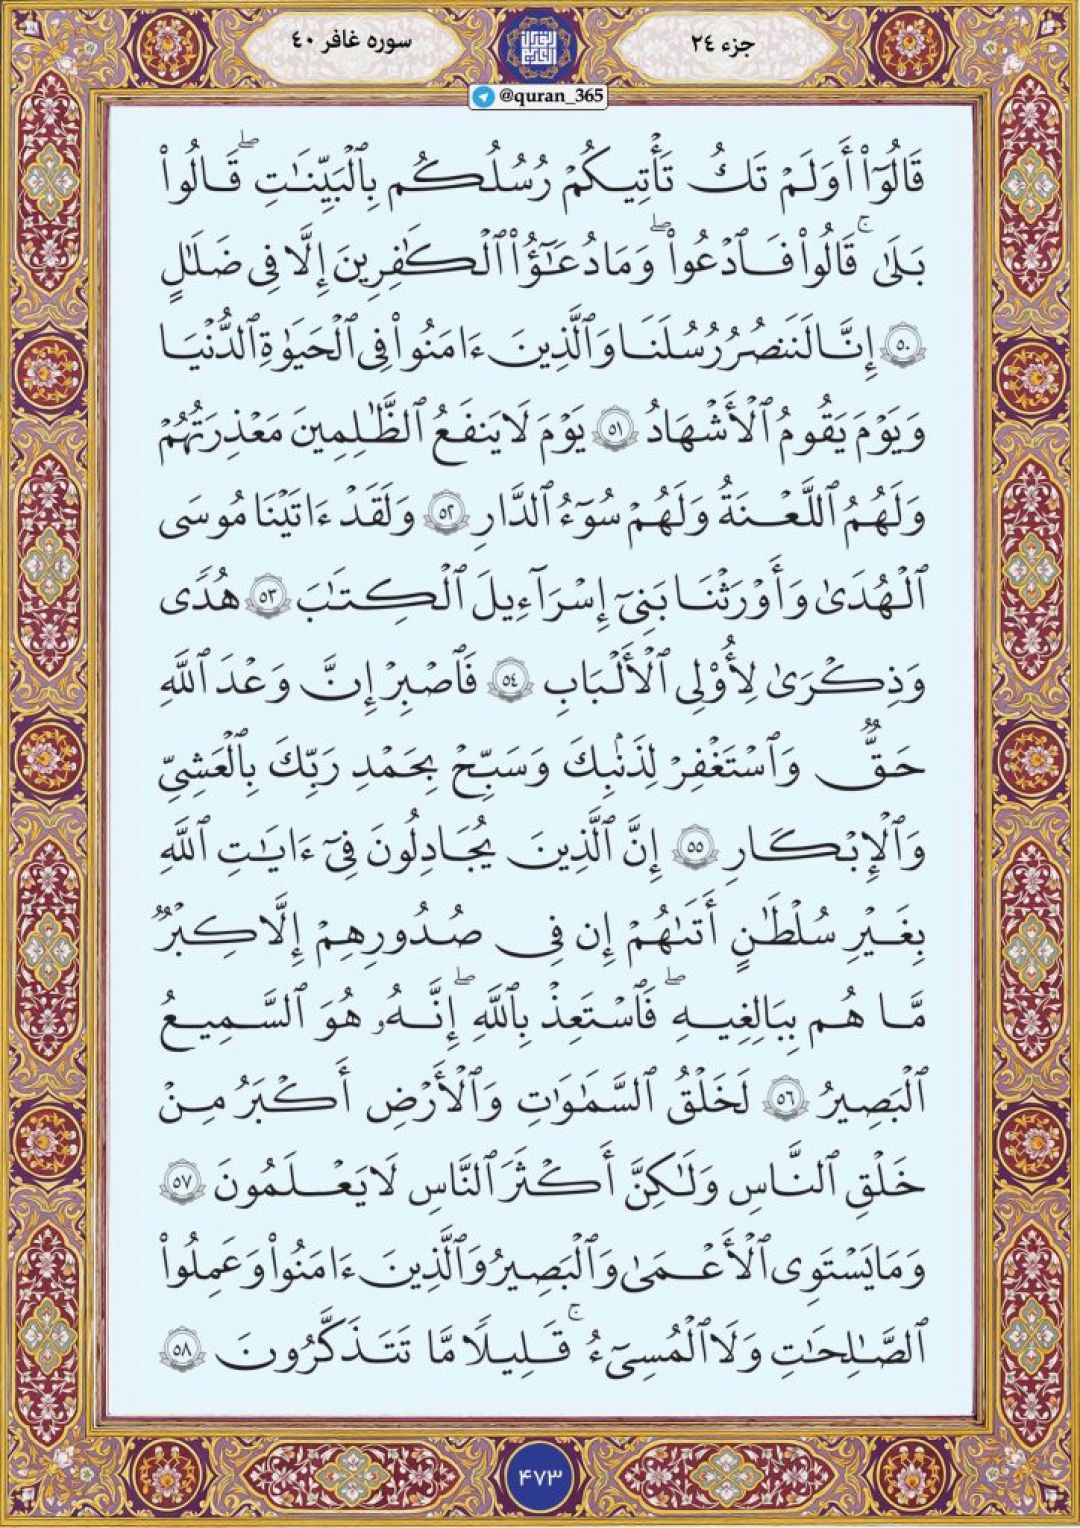 جزء ۲۴
سوره غافر ۴۰
@quran_365
قَالُوٓا۟ أَوَلَمْ تَكُ تَأْتِيكُمْ رُسُلُكُم بِٱلْبَيِّنَٰتِ ۖ قَالُوا۟
بَلَىٰ ۚ قَالُوا۟ فَٱدْعُوا۟ ۖ وَمَا دُعَٰٓؤُا۟ ٱلْكَٰفِرِينَ إِلَّا فِى ضَلَٰلٍ
٥٠ إِنَّا لَنَنصُرُ رُسُلَنَا وَٱلَّذِينَ ءَامَنُوا۟ فِى ٱلْحَيَوٰةِ ٱلدُّنْيَا
وَيَوْمَ يَقُومُ ٱلْأَشْهَادُ ٥١ يَوْمَ لَا يَنفَعُ ٱلظَّٰلِمِينَ مَعْذِرَتُهُمْ
وَلَهُمُ ٱللَّعْنَةُ وَلَهُمْ سُوٓءُ ٱلدَّارِ ٥٢ وَلَقَدْ ءَاتَيْنَا مُوسَى
ٱلْهُدَىٰ وَأَوْرَثْنَا بَنِىٓ إِسْرَٰٓءِيلَ ٱلْكِتَٰبَ ٥٣ هُدًى
وَذِكْرَىٰ لِأُو۟لِى ٱلْأَلْبَٰبِ ٥٤ فَٱصْبِرْ إِنَّ وَعْدَ ٱللَّهِ
حَقٌّ وَٱسْتَغْفِرْ لِذَنۢبِكَ وَسَبِّحْ بِحَمْدِ رَبِّكَ بِٱلْعَشِىِّ
وَٱلْإِبْكَٰرِ ٥٥ إِنَّ ٱلَّذِينَ يُجَٰدِلُونَ فِىٓ ءَايَٰتِ ٱللَّهِ
بِغَيْرِ سُلْطَٰنٍ أَتَىٰهُمْ إِن فِى صُدُورِهِمْ إِلَّا كِبْرٌ
مَّا هُم بِبَٰلِغِيهِ ۖ فَٱسْتَعِذْ بِٱللَّهِ ۖ إِنَّهُۥ هُوَ ٱلسَّمِيعُ
ٱلْبَصِيرُ ٥٦ لَخَلْقُ ٱلسَّمَٰوَٰتِ وَٱلْأَرْضِ أَكْبَرُ مِنْ
خَلْقِ ٱلنَّاسِ وَلَٰكِنَّ أَكْثَرَ ٱلنَّاسِ لَا يَعْلَمُونَ ٥٧
وَمَا يَسْتَوِى ٱلْأَعْمَىٰ وَٱلْبَصِيرُ وَٱلَّذِينَ ءَامَنُوا۟ وَعَمِلُوا۟
ٱلصَّٰلِحَٰتِ وَلَا ٱلْمُسِىٓءُ ۚ قَلِيلًا مَّا تَتَذَكَّرُونَ ٥٨
۴۷۳